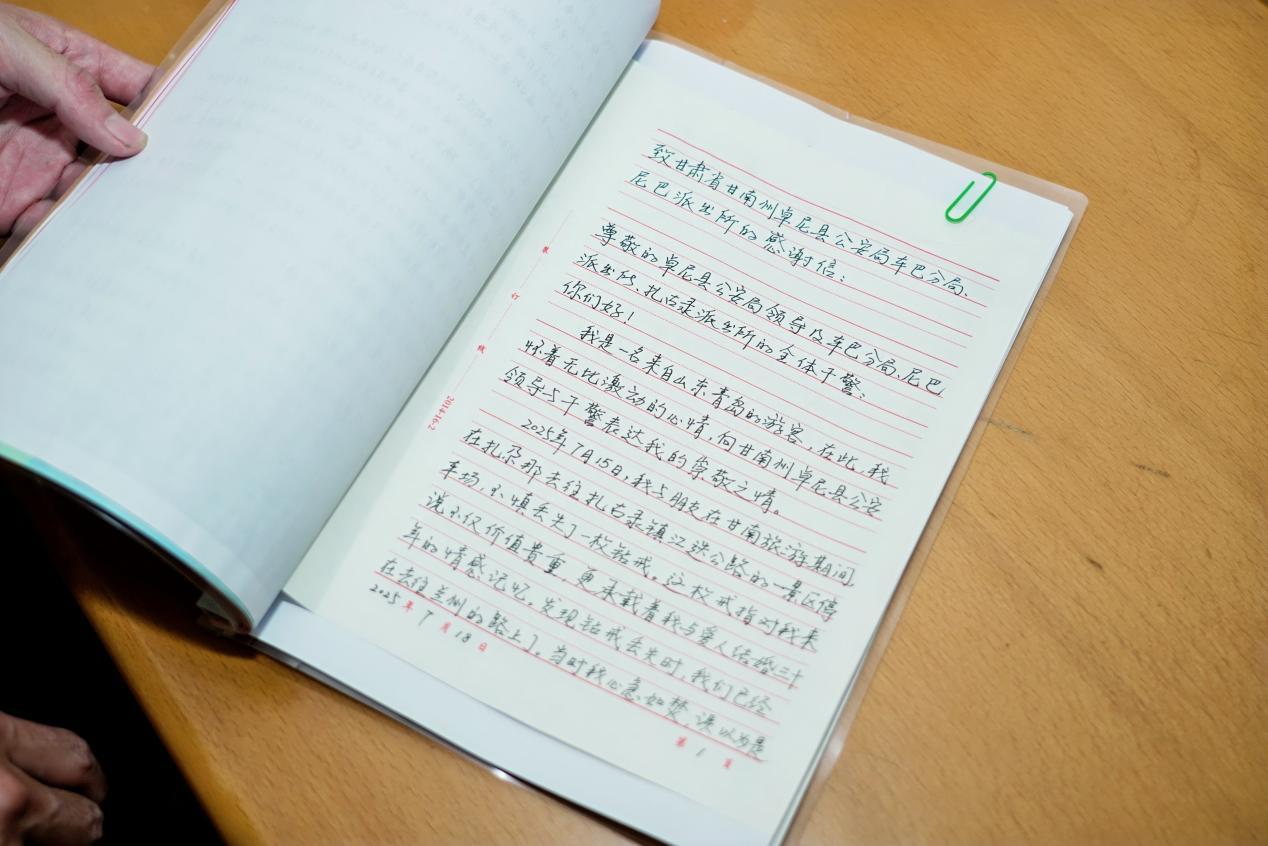 致甘肃省甘南州卓尼县公安局车巴分局、
尼巴派出所的感谢信：
尊敬的卓尼县公安局领导及车巴分局、尼巴
派出所、扎古录派出所的全体干警：
你们好！
我是一名来自山东青岛的游客，在此，我
怀着无比激动的心情，向甘南州卓尼县公安
领导与干警表达我的崇敬之情。
2025年7月15日，我与朋友在甘南旅游期间，
在扎尕那去往扎古录镇江迭公路的一景区停
车场，不慎丢失了一枚钻戒。这枚戒指对我来
说不仅价值贵重，更承载着我与爱人结婚三十
年的情感记忆。发现钻戒丢失时，我们已经
在去往兰州的路上了。当时我心急如焚，误以为是
2025年7月18日
第1页
装订线
2014-16-2